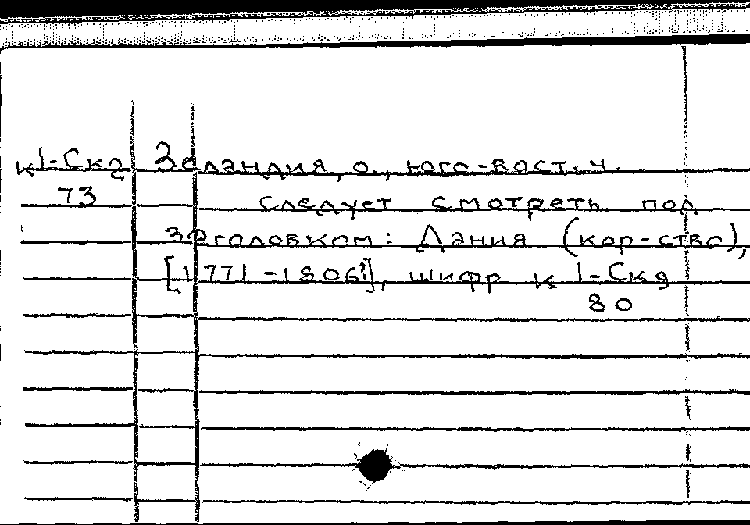 к 1-Ска Зеландия, о., юго-вост. ч.
73 следует смотреть под
заголовком: Дания (кор-ство),
[1771-1806], шифр к 1-Ска
80